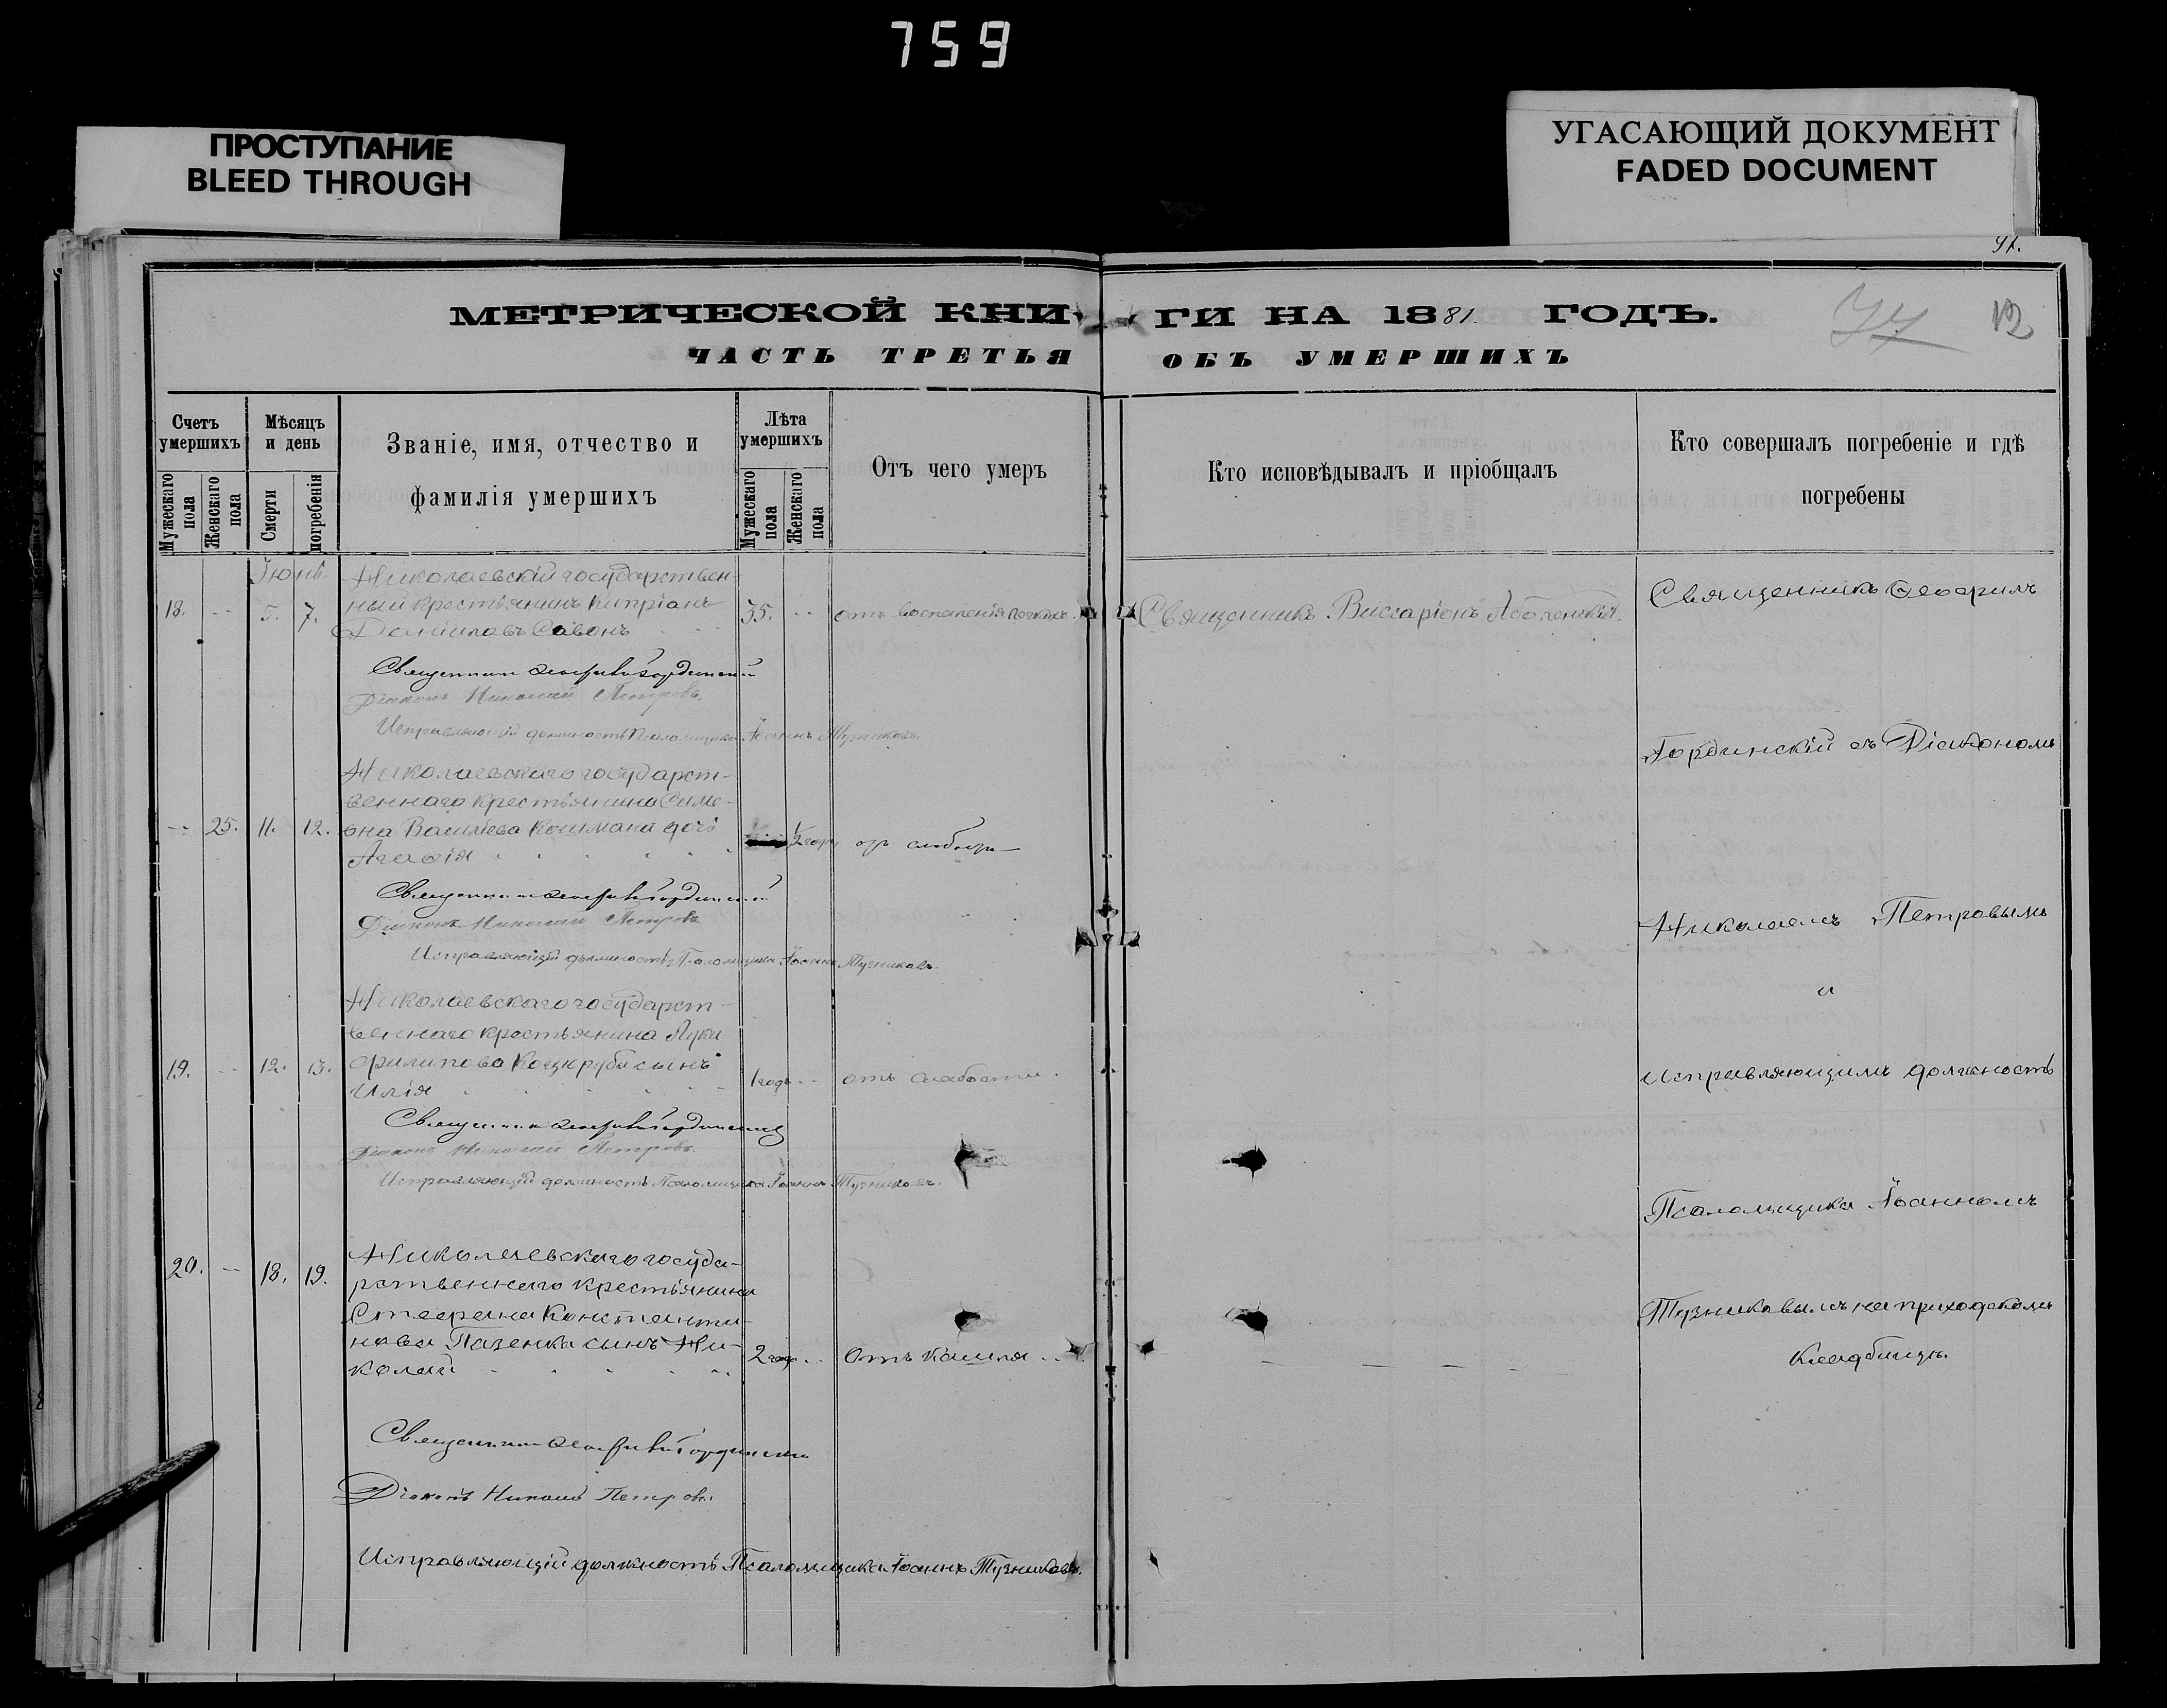 759
ПРОСТУПАНИЕ
BLEED THROUGH
УГАСАЮЩИЙ ДОКУМЕНТ
FADED DOCUMENT
МЕТРИЧЕСКОЙ КНИГИ НА 1881 ГОДЪ.
12
ЧАСТЬ ТРЕТЬЯ ОБЪ УМЕРШИХЪ
Счетъ умершихъ
Мужескаго пола
Женскаго пола
Мѣсяцъ и день
Смерти
погребенія
Званіе, имя, отчество и
фамилія умершихъ
Лѣта умершихъ
Мужескаго пола
Женскаго пола
Отъ чего умеръ
Кто исповѣдывалъ и пріобщалъ
Кто совершалъ погребеніе и гдѣ
погребены
Іюнь.
18. -- 5. 7.
Николаевскій государствен-
ный крестьянинъ Кипріанъ
Даніиловъ Савонъ
35. --
отъ воспаленія легкихъ.
Священникъ Виссаріонъ
Священникъ Ѳеофилъ
Священникъ Гординскій
Діаконъ Николай Петровъ.
Исправляющій должность Псаломщика Іоаннъ Тузниковъ.
Гординскій съ Діакономъ
-- 25. 11. 12.
Николаевскаго государст-
веннаго крестьянина Симе-
она Василіева дочь
Агафія
1/2 года
отъ слабости
Священникъ Гординскій
Діаконъ Николай Петровъ
Исправляющій должность Псаломщика Іоаннъ Тузниковъ.
Николаемъ Петровымъ
и
19. -- 12. 13.
Николаевскаго государст-
веннаго крестьянина Луки
Филипова сынъ
Илія
1 годъ --
отъ слабости.
Исправляющимъ должность
Священникъ Гординскій
Діаконъ Николай Петровъ.
Исправляющій должность Псаломщика Іоаннъ Тузниковъ.
Псаломщика Іоанномъ
20. -- 18. 19.
Николаевскаго госуда-
рственнаго крестьянина
Стефана Константи-
нова Пазенка сынъ Ни-
колай
2 года --
Отъ кашля
Тузниковымъ на приходскомъ
кладбищѣ.
Священникъ Гординскій
Діаконъ Николай Петровъ.
Исправляющій должность Псаломщика Іоаннъ Тузниковъ.